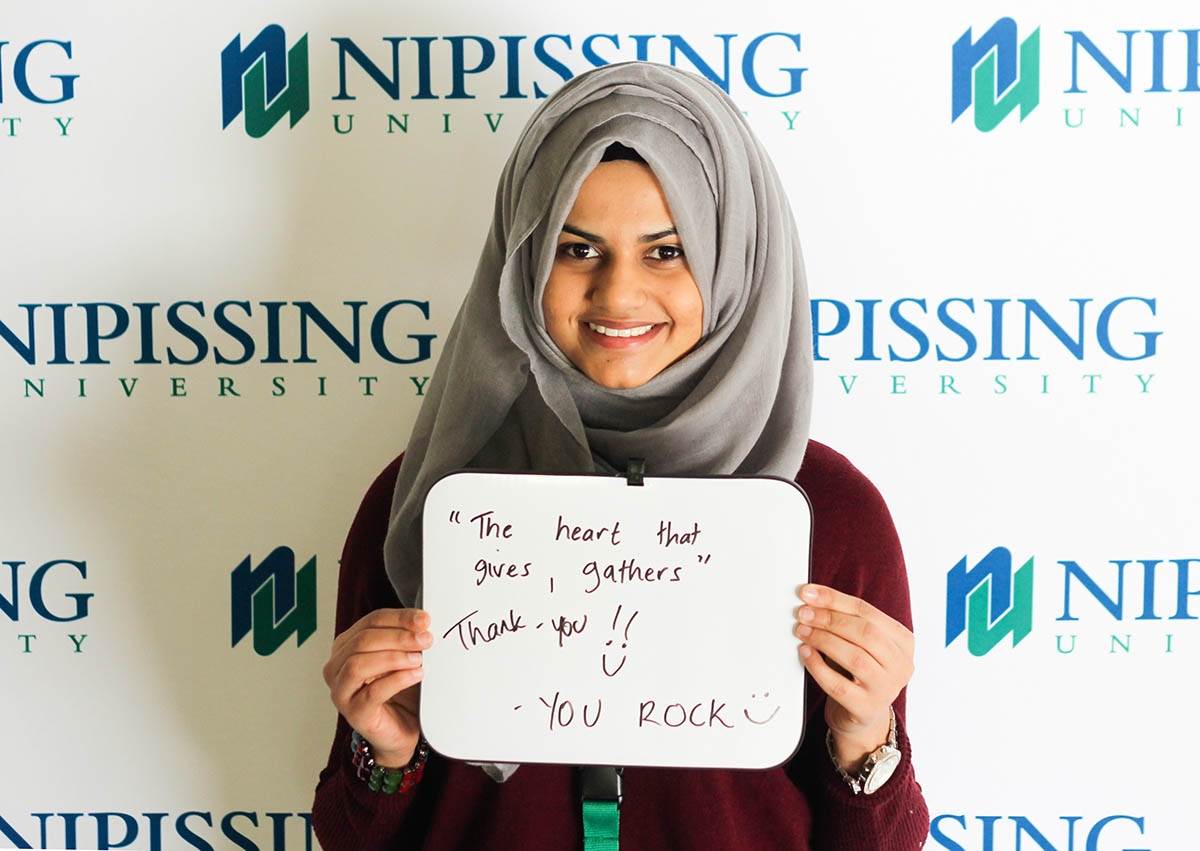 NG NIPISSING NIP
TY UNIVERSITY UNI
NIPISSING PISSING
NIVERSITY VERSITY
"The heart that
gives, gathers"
Thank-you !!
- YOU ROCK
NG NIP
TY UNI
NIPISSIN SSING